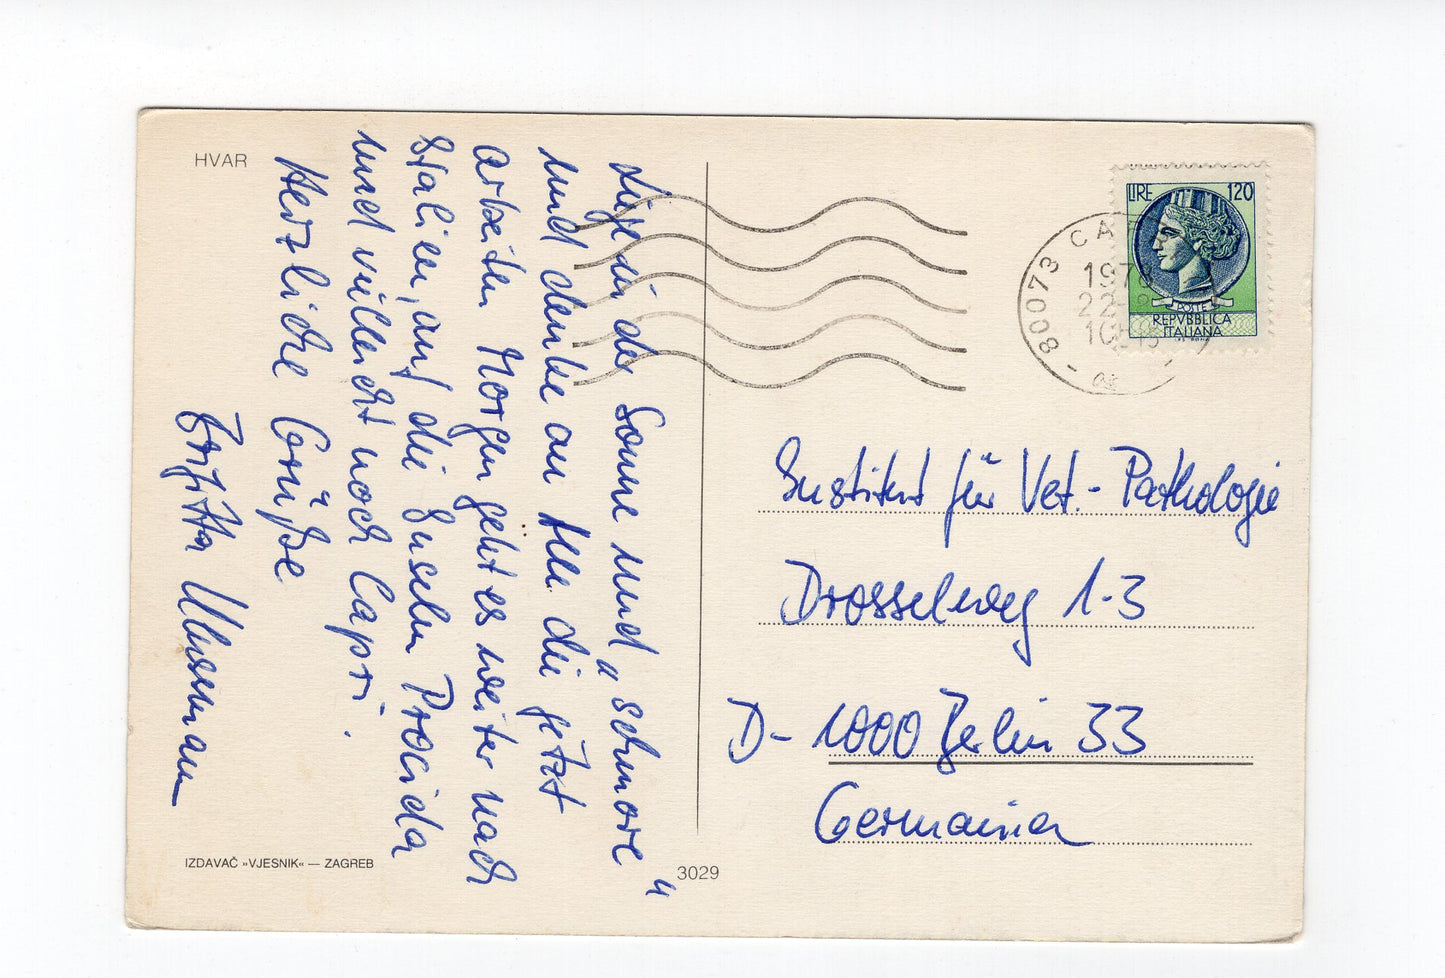 HVAR
Liege in der Sonne und "schmore"
und denke an alle die jetzt
arbeiten. Morgen geht es weiter nach
Italien, auf die Inseln Procida
und villeicht noch Capri.
Herzliche Grüße
Brigitta
IZDAVAČ »VJESNIK« — ZAGREB
3029
LIRE 120
POSTE
REPVBBLICA
ITALIANA
80073 CA
197
22
10
Institut für Vet.- Pathologie
Drosselweg 1-3
D- 1000 Berlin 33
Germania